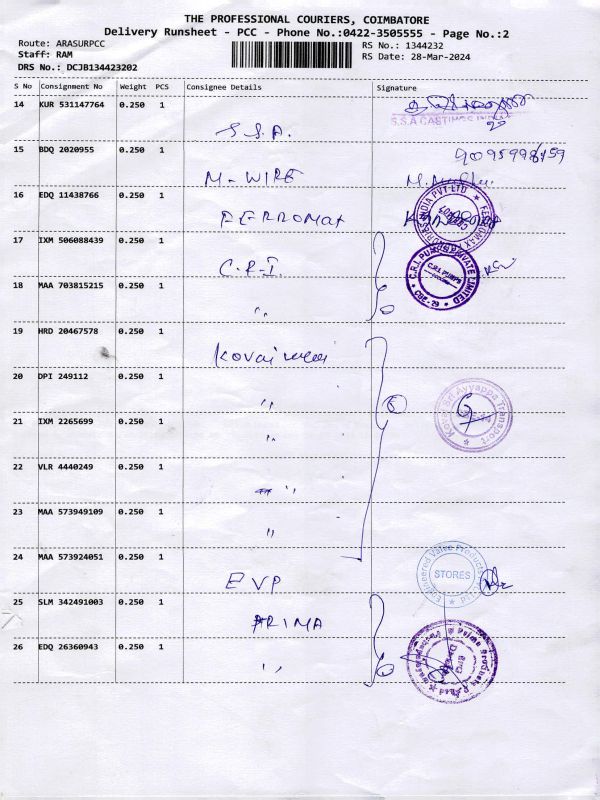 THE PROFESSIONAL COURIERS, COIMBATORE
Delivery Runsheet - PCC - Phone No.:0422-3505555 - Page No.:2
Route: ARASURPCC
RS No.: 1344232
Staff: RAM
RS Date: 28-Mar-2024
DRS No.: DCJB134423202
S No Consignment No Weight PCS Consignee Details Signature
14 KUR 531147764 0.250 1
S.S.A.
S.S.A CASTINGS
15 BDQ 2020955 0.250 1
M-WIRE
16 EDQ 11438766 0.250 1
FERROMAX
17 IXM 506088439 0.250 1
C.R.I.
C.R.I. PUMPS PRIVATE LIMITED
C.R.I. PUMPS
18 MAA 703815215 0.250 1
"
19 HRD 20467578 0.250 1
Kovai
20 DPI 249112 0.250 1
"
Kovai Sri Ayyappa Transport
21 IXM 2265699 0.250 1
"
22 VLR 4440249 0.250 1
"
23 MAA 573949109 0.250 1
"
24 MAA 573924051 0.250 1
EVP
Engineered Valve Products
STORES
25 SLM 342491003 0.250 1
PRIMA
26 EDQ 26360943 0.250 1
"